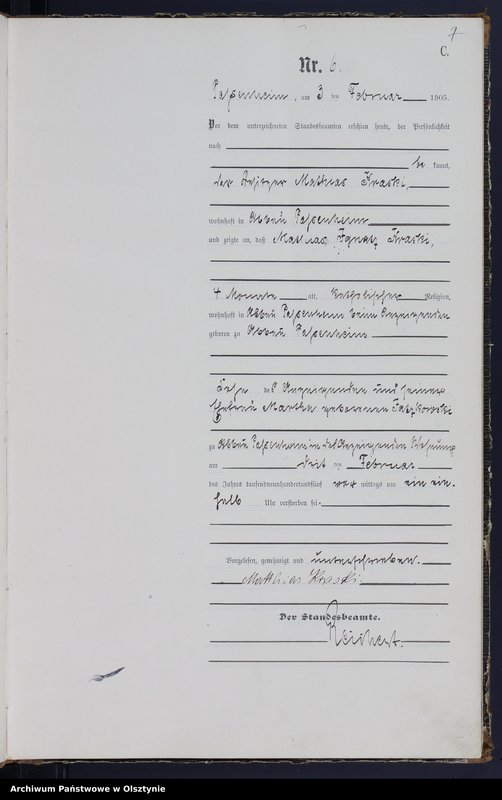 7
C.
Nr. 6.
Passenheim, am 3 ten Februar 1905.
Vor dem unterzeichneten Standesbeamten erschien heute, der Persönlichkeit
nach
be kannt,
der Besitzer Mathias Kraski,
wohnhaft in Abbau Passenheim
und zeigte an, daß Mathias Ignatz Kraski,
4 Monate alt, katholischer Religion,
wohnhaft in Abbau Passenheim beim Anzeigenden
geboren zu Abbau Passenheim
Sohn des Anzeigenden und seiner
Ehefrau Martha geborenen
zu Abbau Passenheim in des Anzeigenden Wohnung
am ten Februar
des Jahres tausendneunhundertundfünf vor mittags um ein ein-
halb Uhr verstorben sei.
Vorgelesen, genehmigt und unterschrieben.
Mathias Kraski
Der Standesbeamte.
Reichert.
Archiwum Państwowe w Olsztynie